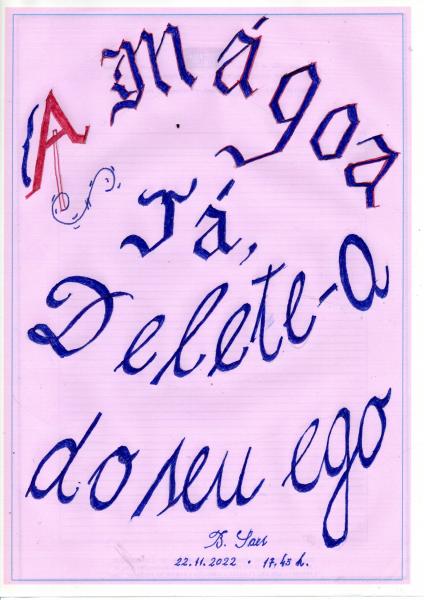 A Mágoa
Já,
Delete-a
do seu ego
22.11.2022 · 17,45 h.